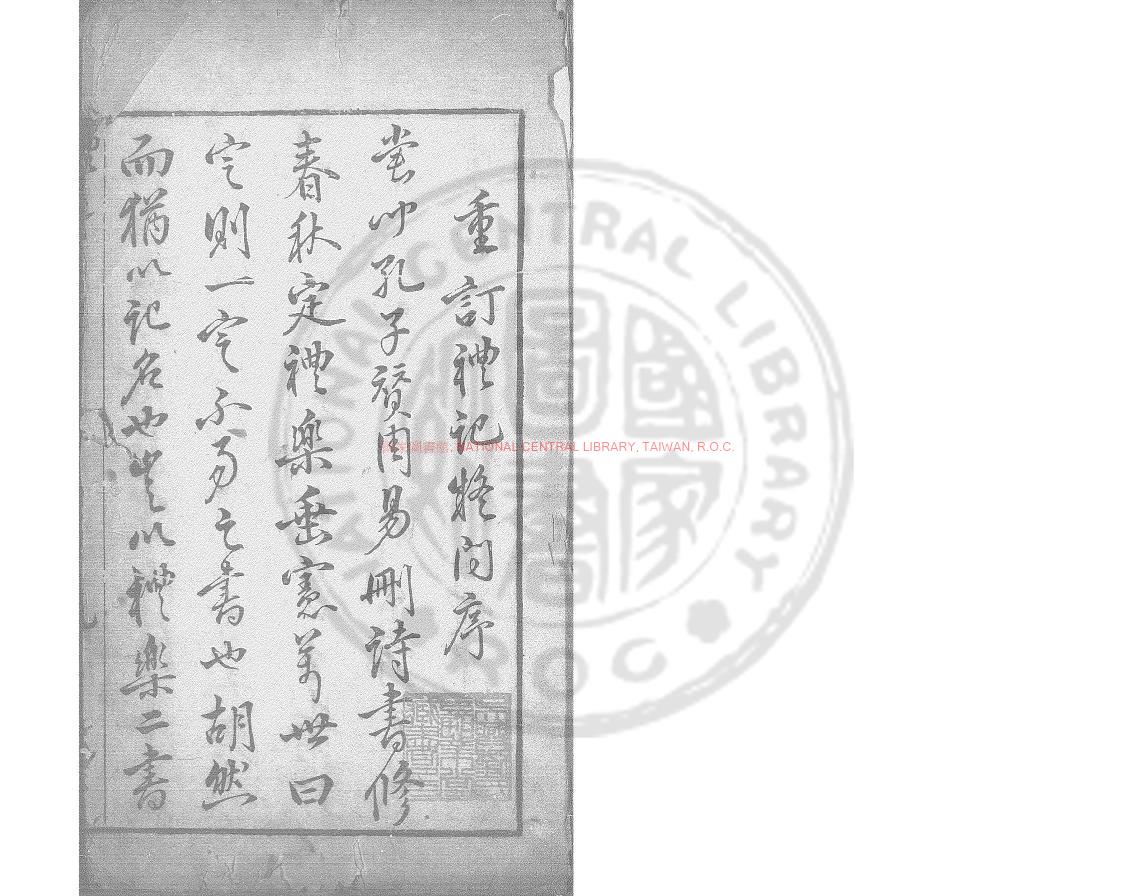 重訂禮記疑問序
嘗孔子贊周易刪詩書修
春秋定禮樂垂憲萬世曰
定則一定不易之書也胡然
而猶以記名也豈以禮樂二書
NATIONAL CENTRAL LIBRARY
國家圖書
R.O.C
國家圖書館, NATIONAL CENTRAL LIBRARY, TAIWAN, R.O.C.